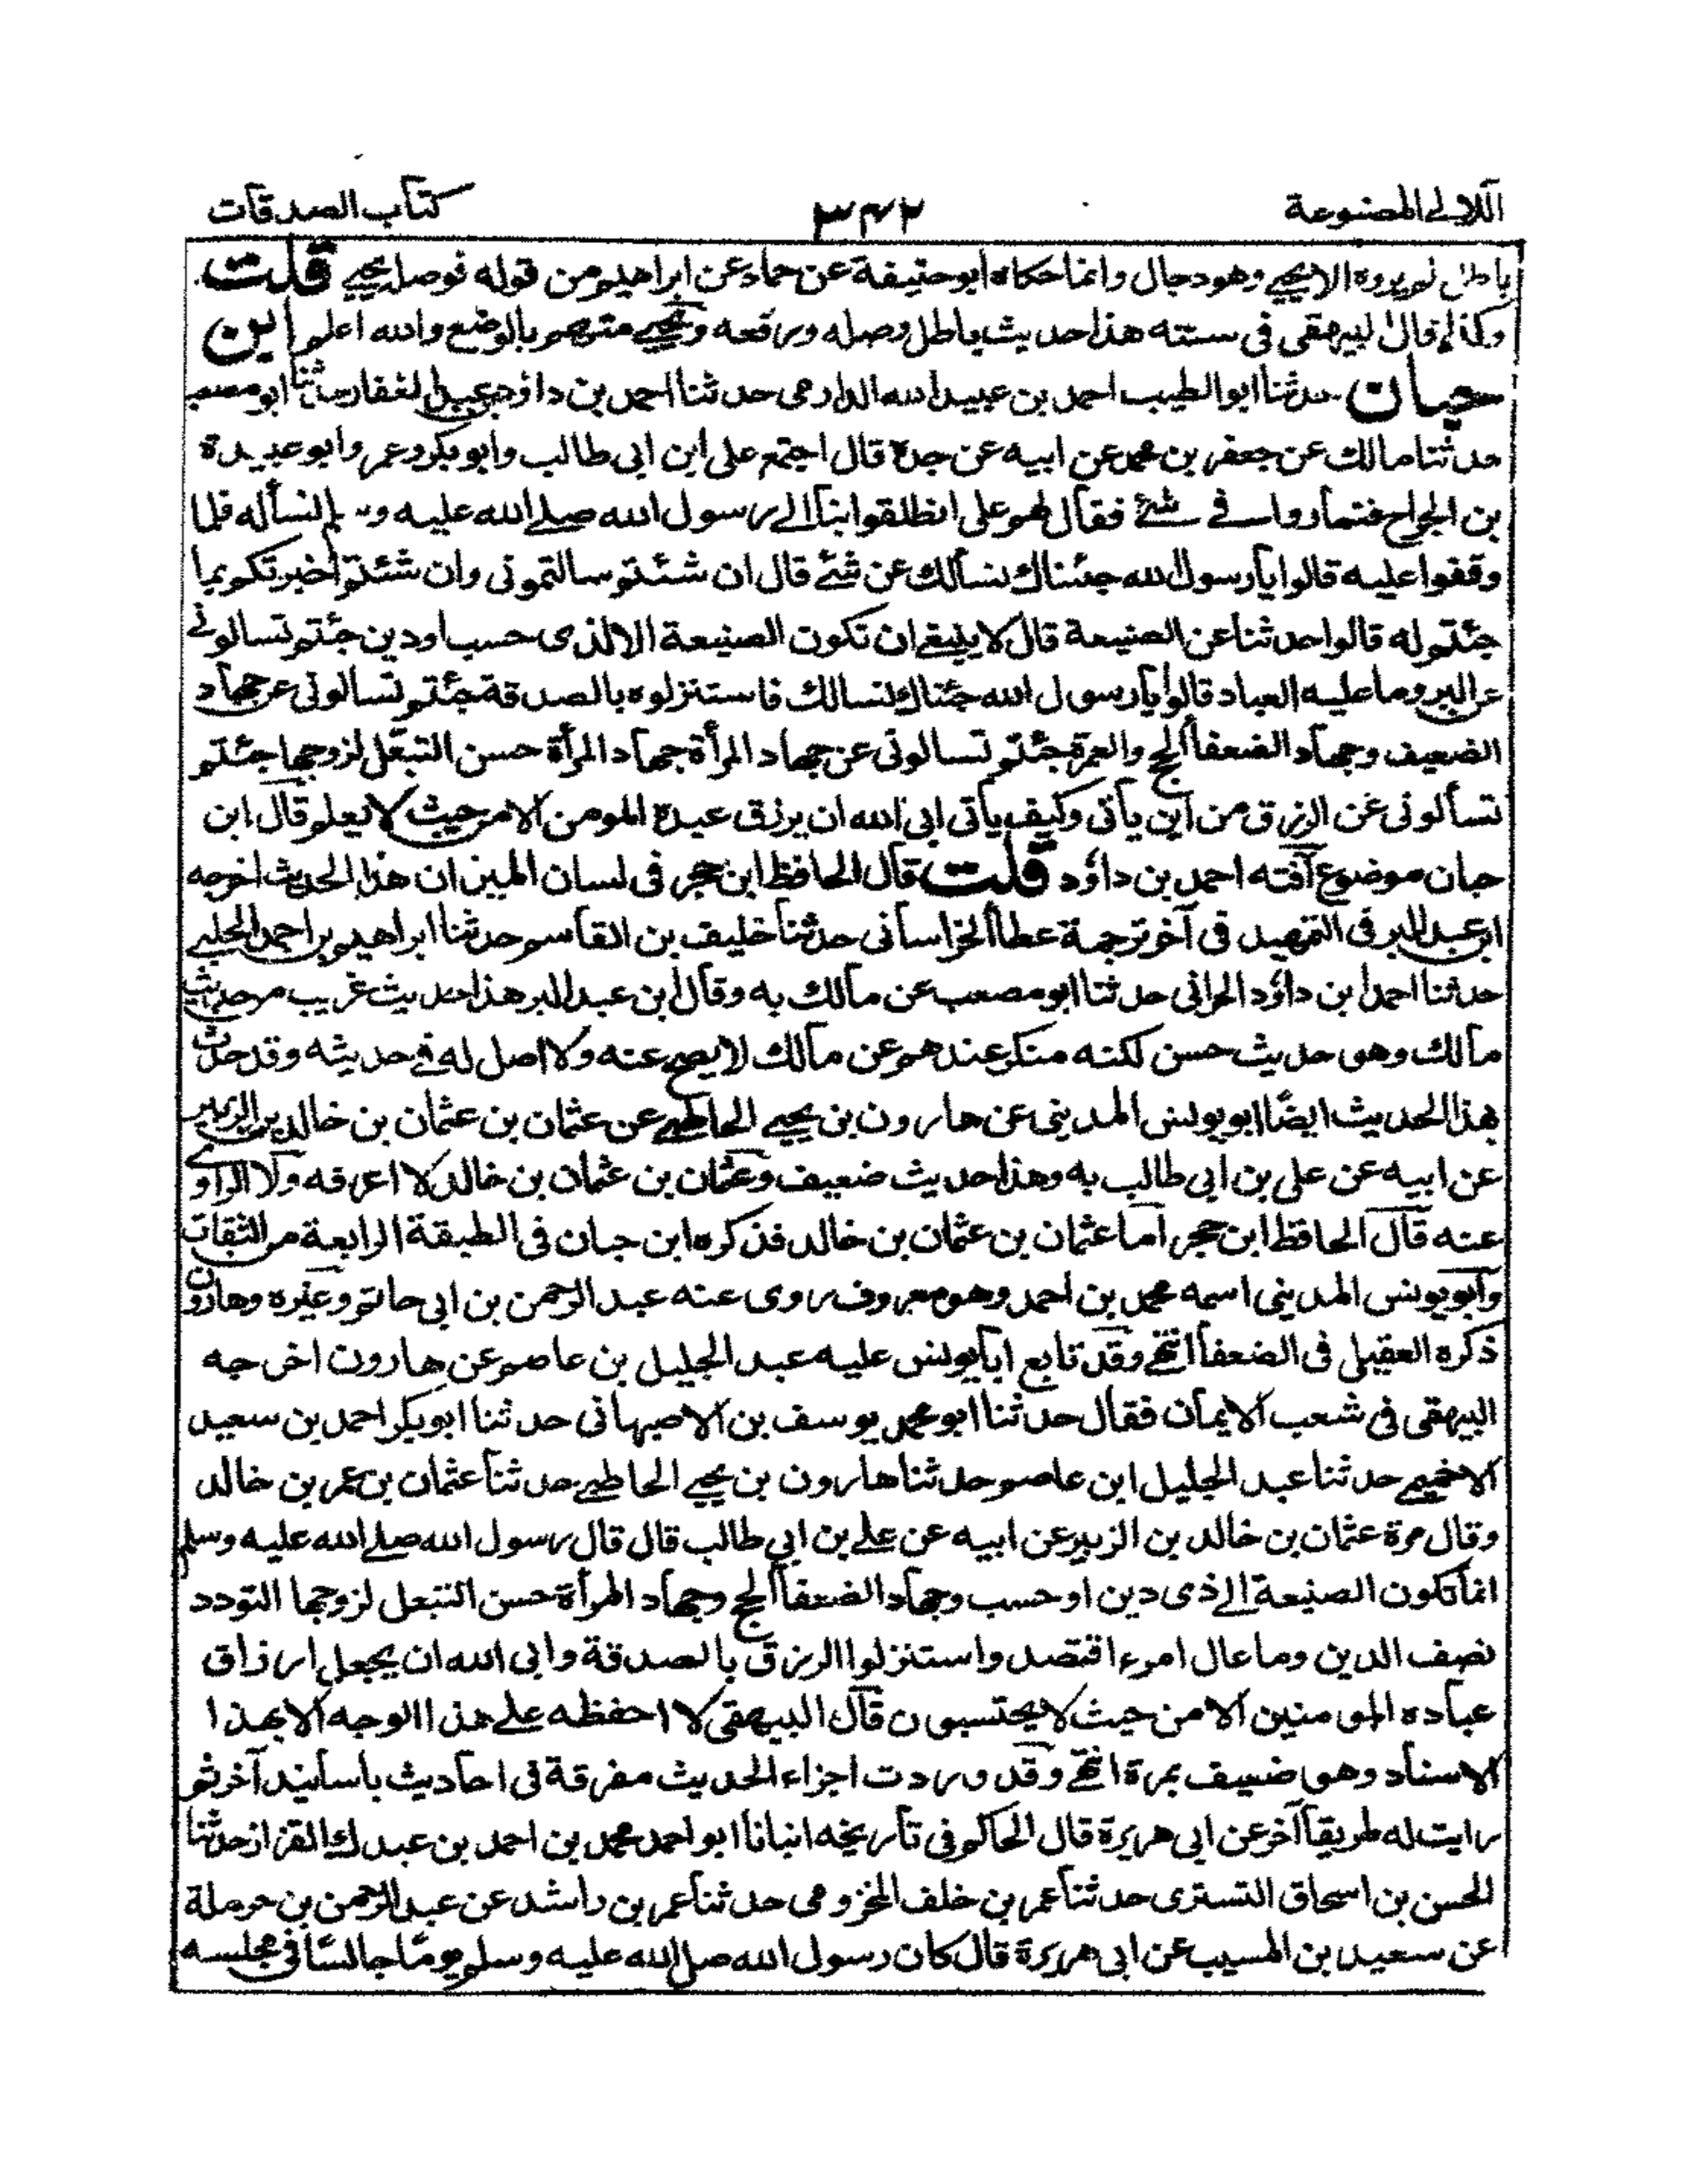 اللآلى المصنوعة
٣٤٢
كتاب الصدقات
باطل لم يروه الا يحيى وهو دجال وانما حكاه ابو حنيفة عن حماد عن ابراهيم من قوله فوصله يحيى قلت
وكذا قال البيهقى فى سننه هذا حديث باطل وصله ورفعه ويحيى متهم بالوضع والله اعلم ابن
حبان حدثنا ابو الطيب احمد بن عبيد الله الدارمى حدثنا احمد بن داؤد بن عبد الغفار حدثنا ابو مصعب
حدثنا مالك عن جعفر بن محمد عن ابيه عن جدة قال اجتمع على ابن ابى طالب وابو بكر وعمر وابو عبيدة
بن الجراح فتماروا فى شئ فقال لهم على انطلقوا بنا الى رسول الله صلى الله عليه وسلم نسأله فلما
وقفوا عليه قالوا يا رسول الله جئناك نسألك عن شئ قال ان شئتم سالتمونى وان شئتم اخبرتكم بما
جئتم له قالوا حدثنا عن الصنيعة قال لا ينبغى ان تكون الصنيعة الا لذى حسب او دين جئتم تسالونى
عن البر وما عليه العباد قالوا يا رسول الله جئناك لنسالك فاستنزلوه بالصدقة جئتم تسالونى عن جهاد
الضعيف وجهاد الضعفا الحج والعمرة جئتم تسالونى عن جهاد المرأة جهاد المرأة حسن التبعل لزوجها جئتم
تسألونى عن الرزق من اين يأتى وكيف يأتى ابى الله ان يرزق عبدة المومن الا من حيث لا يعلم قال ابن
حبان موضوع آفته احمد بن داؤد قلت قال الحافظ ابن حجر فى لسان الميزان هذا الحديث اخرجه
ابن عبد البر فى التمهيد فى آخر ترجمة عطا الخراسانى حدثنا خليف بن القاسم حدثنا ابراهيم بن احمد الحلبى
حدثنا احمد ابن داؤد الحرانى حدثنا ابو مصعب عن مالك به وقال ابن عبد البر هذا حديث غريب من حديث
مالك وهو حديث حسن لكنه منكر عندهم عن مالك لا يصح عنه ولا اصل له فى حديثه وقد حدث
بهذا الحديث ايضًا ابو يونس المدينى عن هارون بن يحيى الحاطبى عن عثمان بن عثمان بن خالد بن الزبير
عن ابيه عن على بن ابى طالب به وهذا حديث ضعيف وعثمان بن عثمان بن خالد لا اعرفه ولا الراوى
عنه قال الحافظ ابن حجر اما عثمان بن عثمان بن خالد فذكره ابن حبان فى الطبقة الرابعة من الثقات
وابو يونس المدينى اسمه محمد بن احمد وهو معروف روى عنه عبد الرحمن بن ابى حاتم وغيره وهارون
ذكره العقيلى فى الضعفا انتهى وقد تابع ابا يونس عليه عبد الجليل بن عاصم عن هارون اخرجه
البيهقى فى شعب الايمان فقال حدثنا ابو محمد يوسف بن الاصبهانى حدثنا ابو بكر احمد بن سعيد
الاخميمى حدثنا عبد الجليل ابن عاصم حدثنا هارون بن يحيى الحاطبى حدثنا عثمان بن عمر بن خالد
وقال مرة عثمان بن خالد بن الزبير عن ابيه عن على بن ابى طالب قال قال رسول الله صلى الله عليه وسلم
انما تكون الصنيعة الى ذى دين او حسب وجهاد الضعفا الحج وجهاد المرأة حسن التبعل لزوجها التودد
نصف الدين وما عال امرء اقتصد واستنزلوا الرزق بالصدقة وابى الله ان يجعل ارزاق
عباده المومنين الا من حيث لا يحتسبون قال البيهقى لا احفظه على هذا الوجه الا بهذا
الاسناد وهو ضعيف بمرة انتهى وقد وردت اجزاء الحديث مفرقة فى احاديث باسانيد آخر ثم
رايت له طريقا آخر عن ابى هريرة قال الحاكم فى تاريخه انبانا ابو احمد محمد بن احمد بن عبدك القزاز حدثنا
الحسن بن اسحاق التسترى حدثنا عمر بن خلف المخزومى حدثنا عمر بن راشد عن عبد الرحمن بن حرملة
عن سعيد بن المسيب عن ابى هريرة قال كان رسول الله صلى الله عليه وسلم يومًا جالسًا فى مجلسه